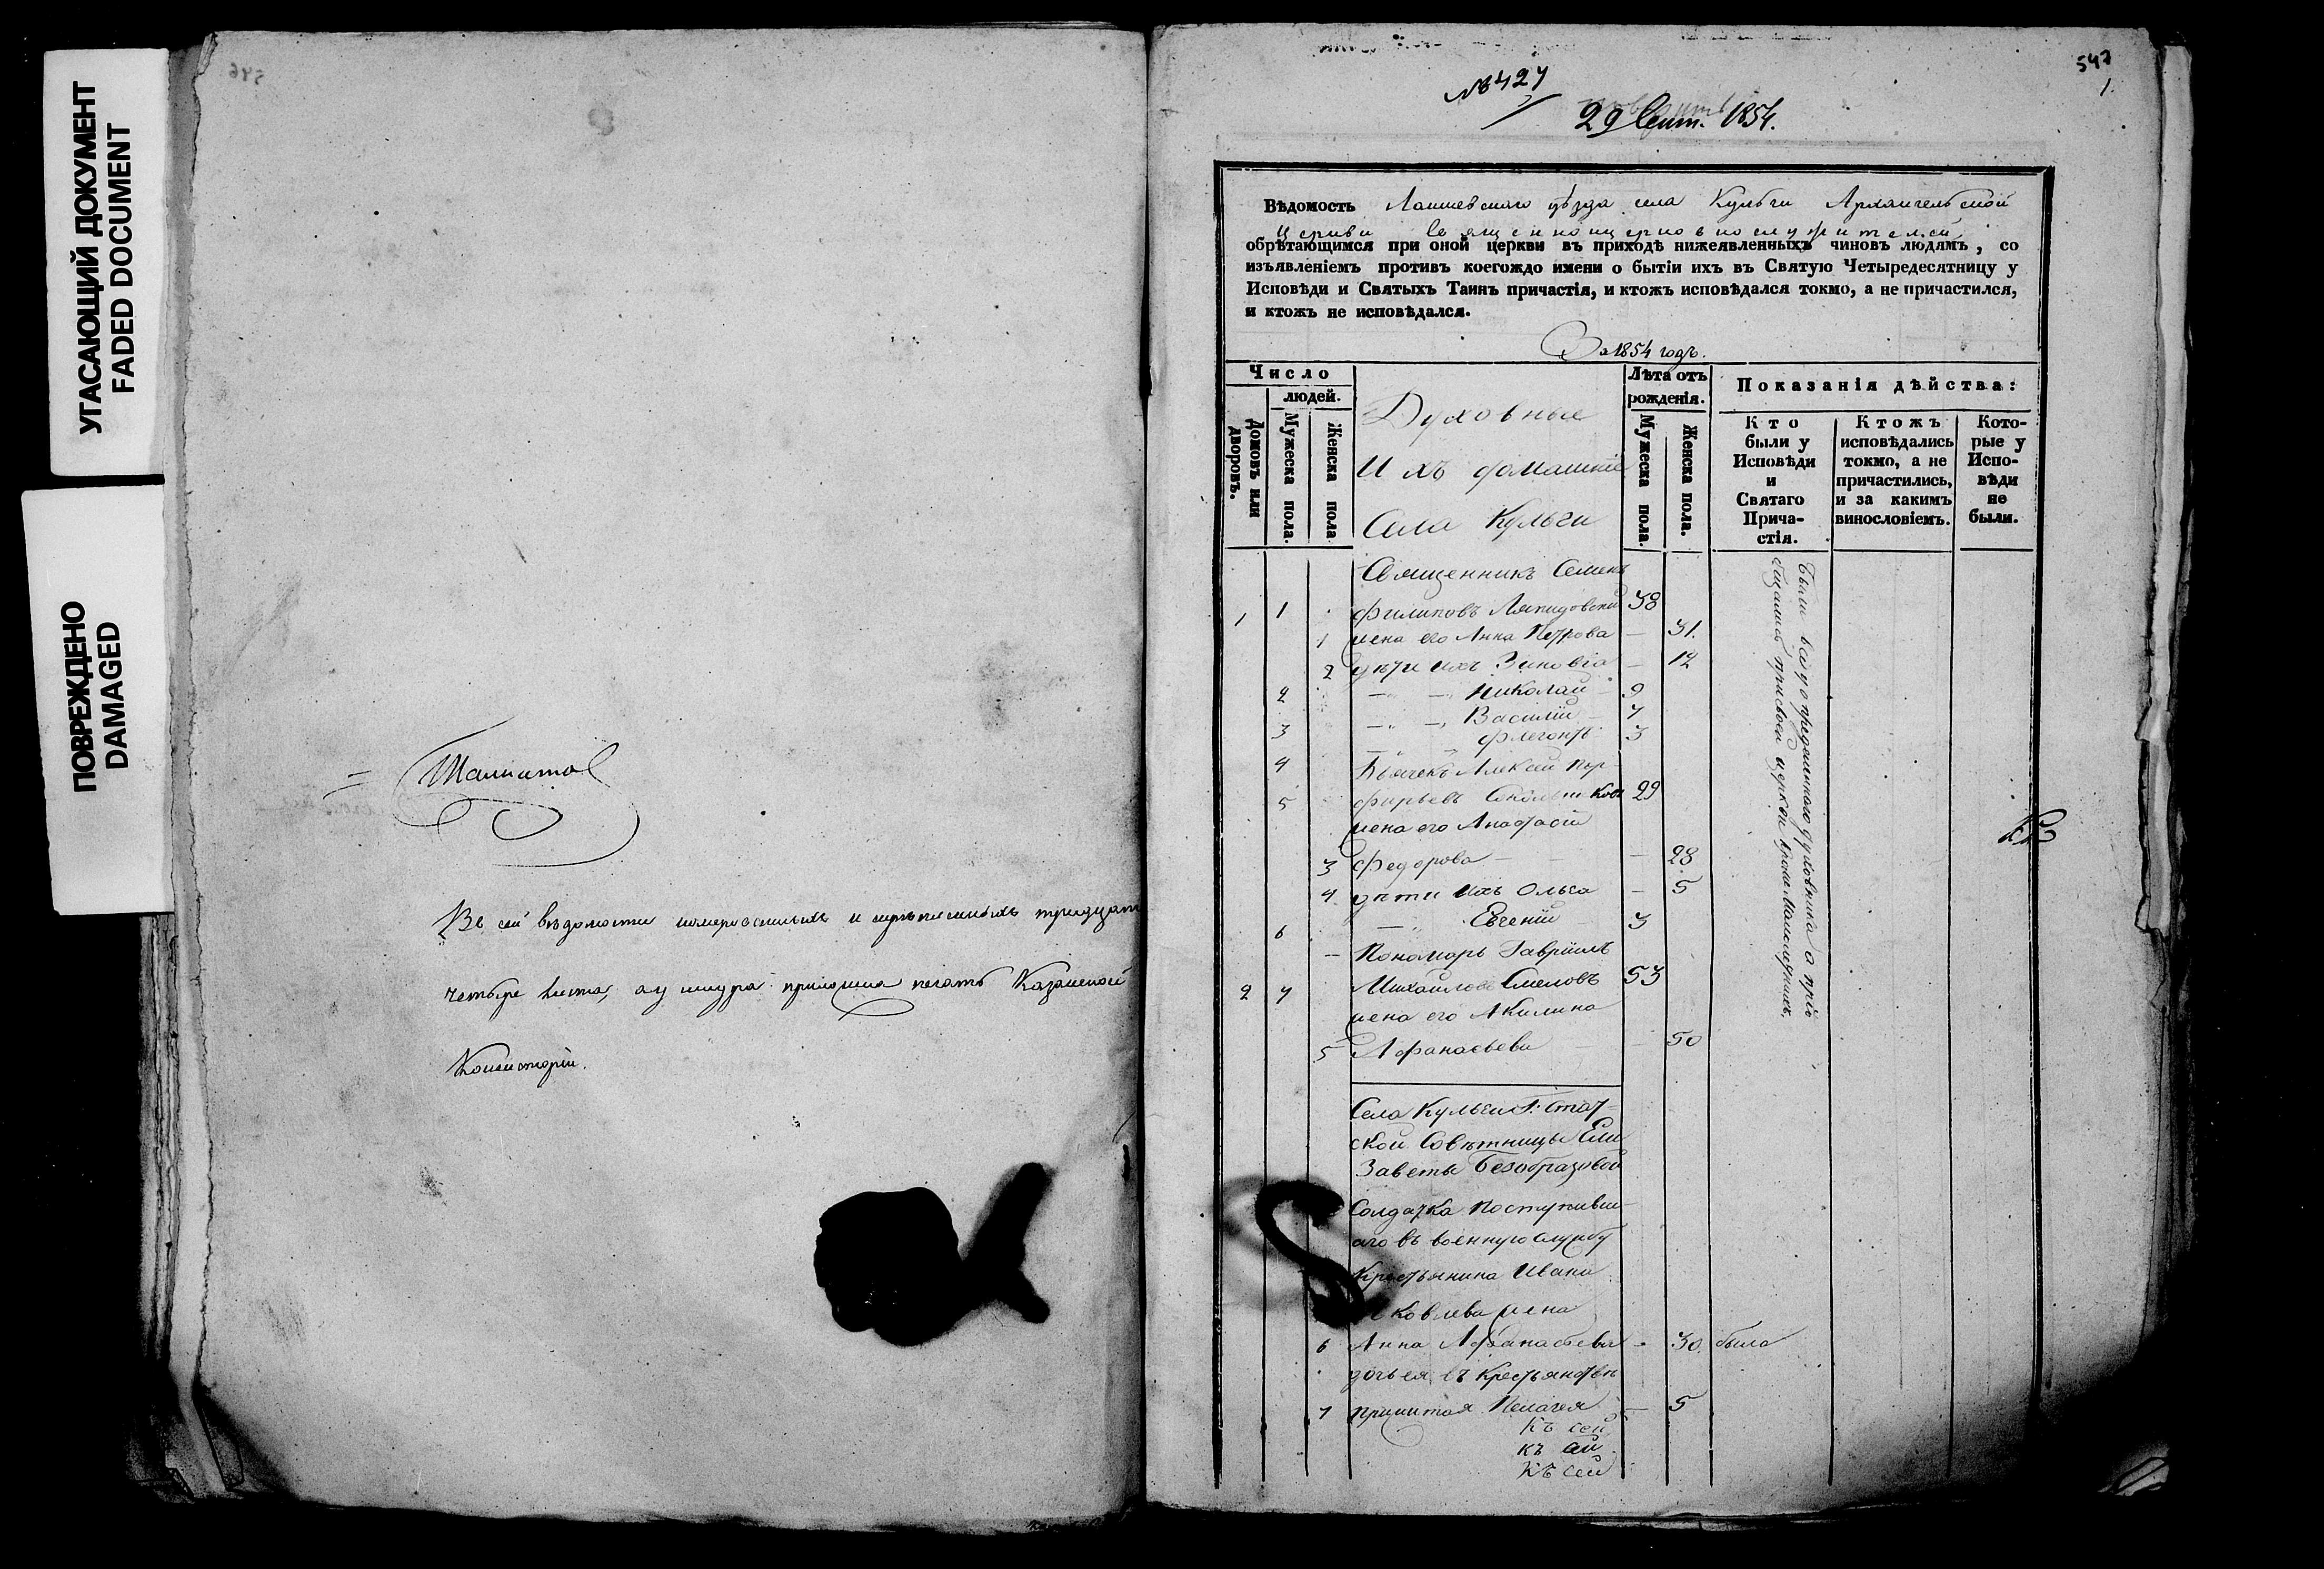 УГАСАЮЩИЙ ДОКУМЕНТ
FADED DOCUMENT
ПОВРЕЖДЕНО
DAMAGED
546
Въ сей вѣдомости номерованныхъ и скрѣпленныхъ тридцать
четыре листа, а у шнура приложена печать Казанской
Консисторіи.
547
1.
№ 427
29 Сент. 1854.
Вѣдомость Лаишевскаго уѣзда села Кульги Архангельской
церкви священноицерковнослужителей,
обрѣтающимся при оной церкви въ приходѣ нижеявленныхъ чиновъ людямъ, со
изъявленіемъ противъ коегождо имени о бытіи ихъ въ Святую Четыредесятницу у
Исповѣди и Святыхъ Таинъ причастія, и ктожъ исповѣдался токмо, а не причастился,
и ктожъ не исповѣдался.
За 1854 годъ.
Число
людей.
Домовъ или дворовъ.
Мужеска пола.
Женска пола
Духовные
И ихъ домашніе
Села Кульги
Лѣта отъ
рожденія.
Мужеска пола.
Женска пола.
Показанія дѣйства:
Кто
были у
Исповѣди
и
Святаго
Прича-
стія.
Ктожъ
исповѣдались
токмо, а не
причастились,
и за какимъ
винословіемъ.
Кото-
рые у
Испо-
вѣди
не
были.
Священникъ Семенъ
1 1 Филиповъ Ляпидовскій 38
1 жена его Анна Петрова — 31.
2 дѣти ихъ Зиновія — 12
2 — — Николай 9
3 — — Василій 7
4 — — Флегонтъ 3
Дьячекъ Алексѣй Пор-
5 фирьевъ Сокольниковъ 29
жена его Анастасія
3 Федорова — — 28
4 дѣти ихъ Ольга — 5
6 — Евгеній 3
Пономарь Гавріилъ
2 7 Михайловъ Смеловъ 53
жена его Акилина
5 Афанасьева — 50
Были всѣ у опредѣленнаго духовника а прі
общались при своей церкви кромѣ малолѣтнихъ.
Села Кульги Г. Стат-
ской Совѣтницы Ели
заветы Безобразовой
Солдатка поступивш-
аго въ военную службу
Крестьянина Ивана
Яковлева жена
6 Анна Афанасьева - 30. была
дочь ея въ крестьянствѣ
7 прижитая Пелагея — 5
Къ сей
къ сей
Къ сей